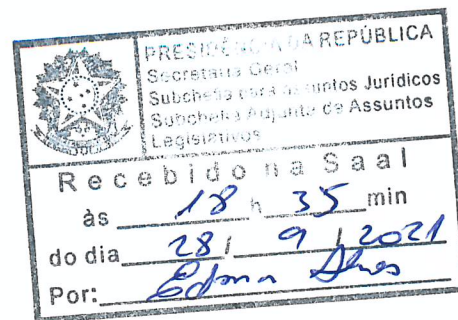 PRESIDÊNCIA DA REPÚBLICA
Secretaria Geral
Subchefia para Assuntos Jurídicos
Subchefia Adjunta de Assuntos
Legislativos
Recebido na Saal
às 18 h 35 min
do dia 28 / 9 / 2021
Por: Edma Alves